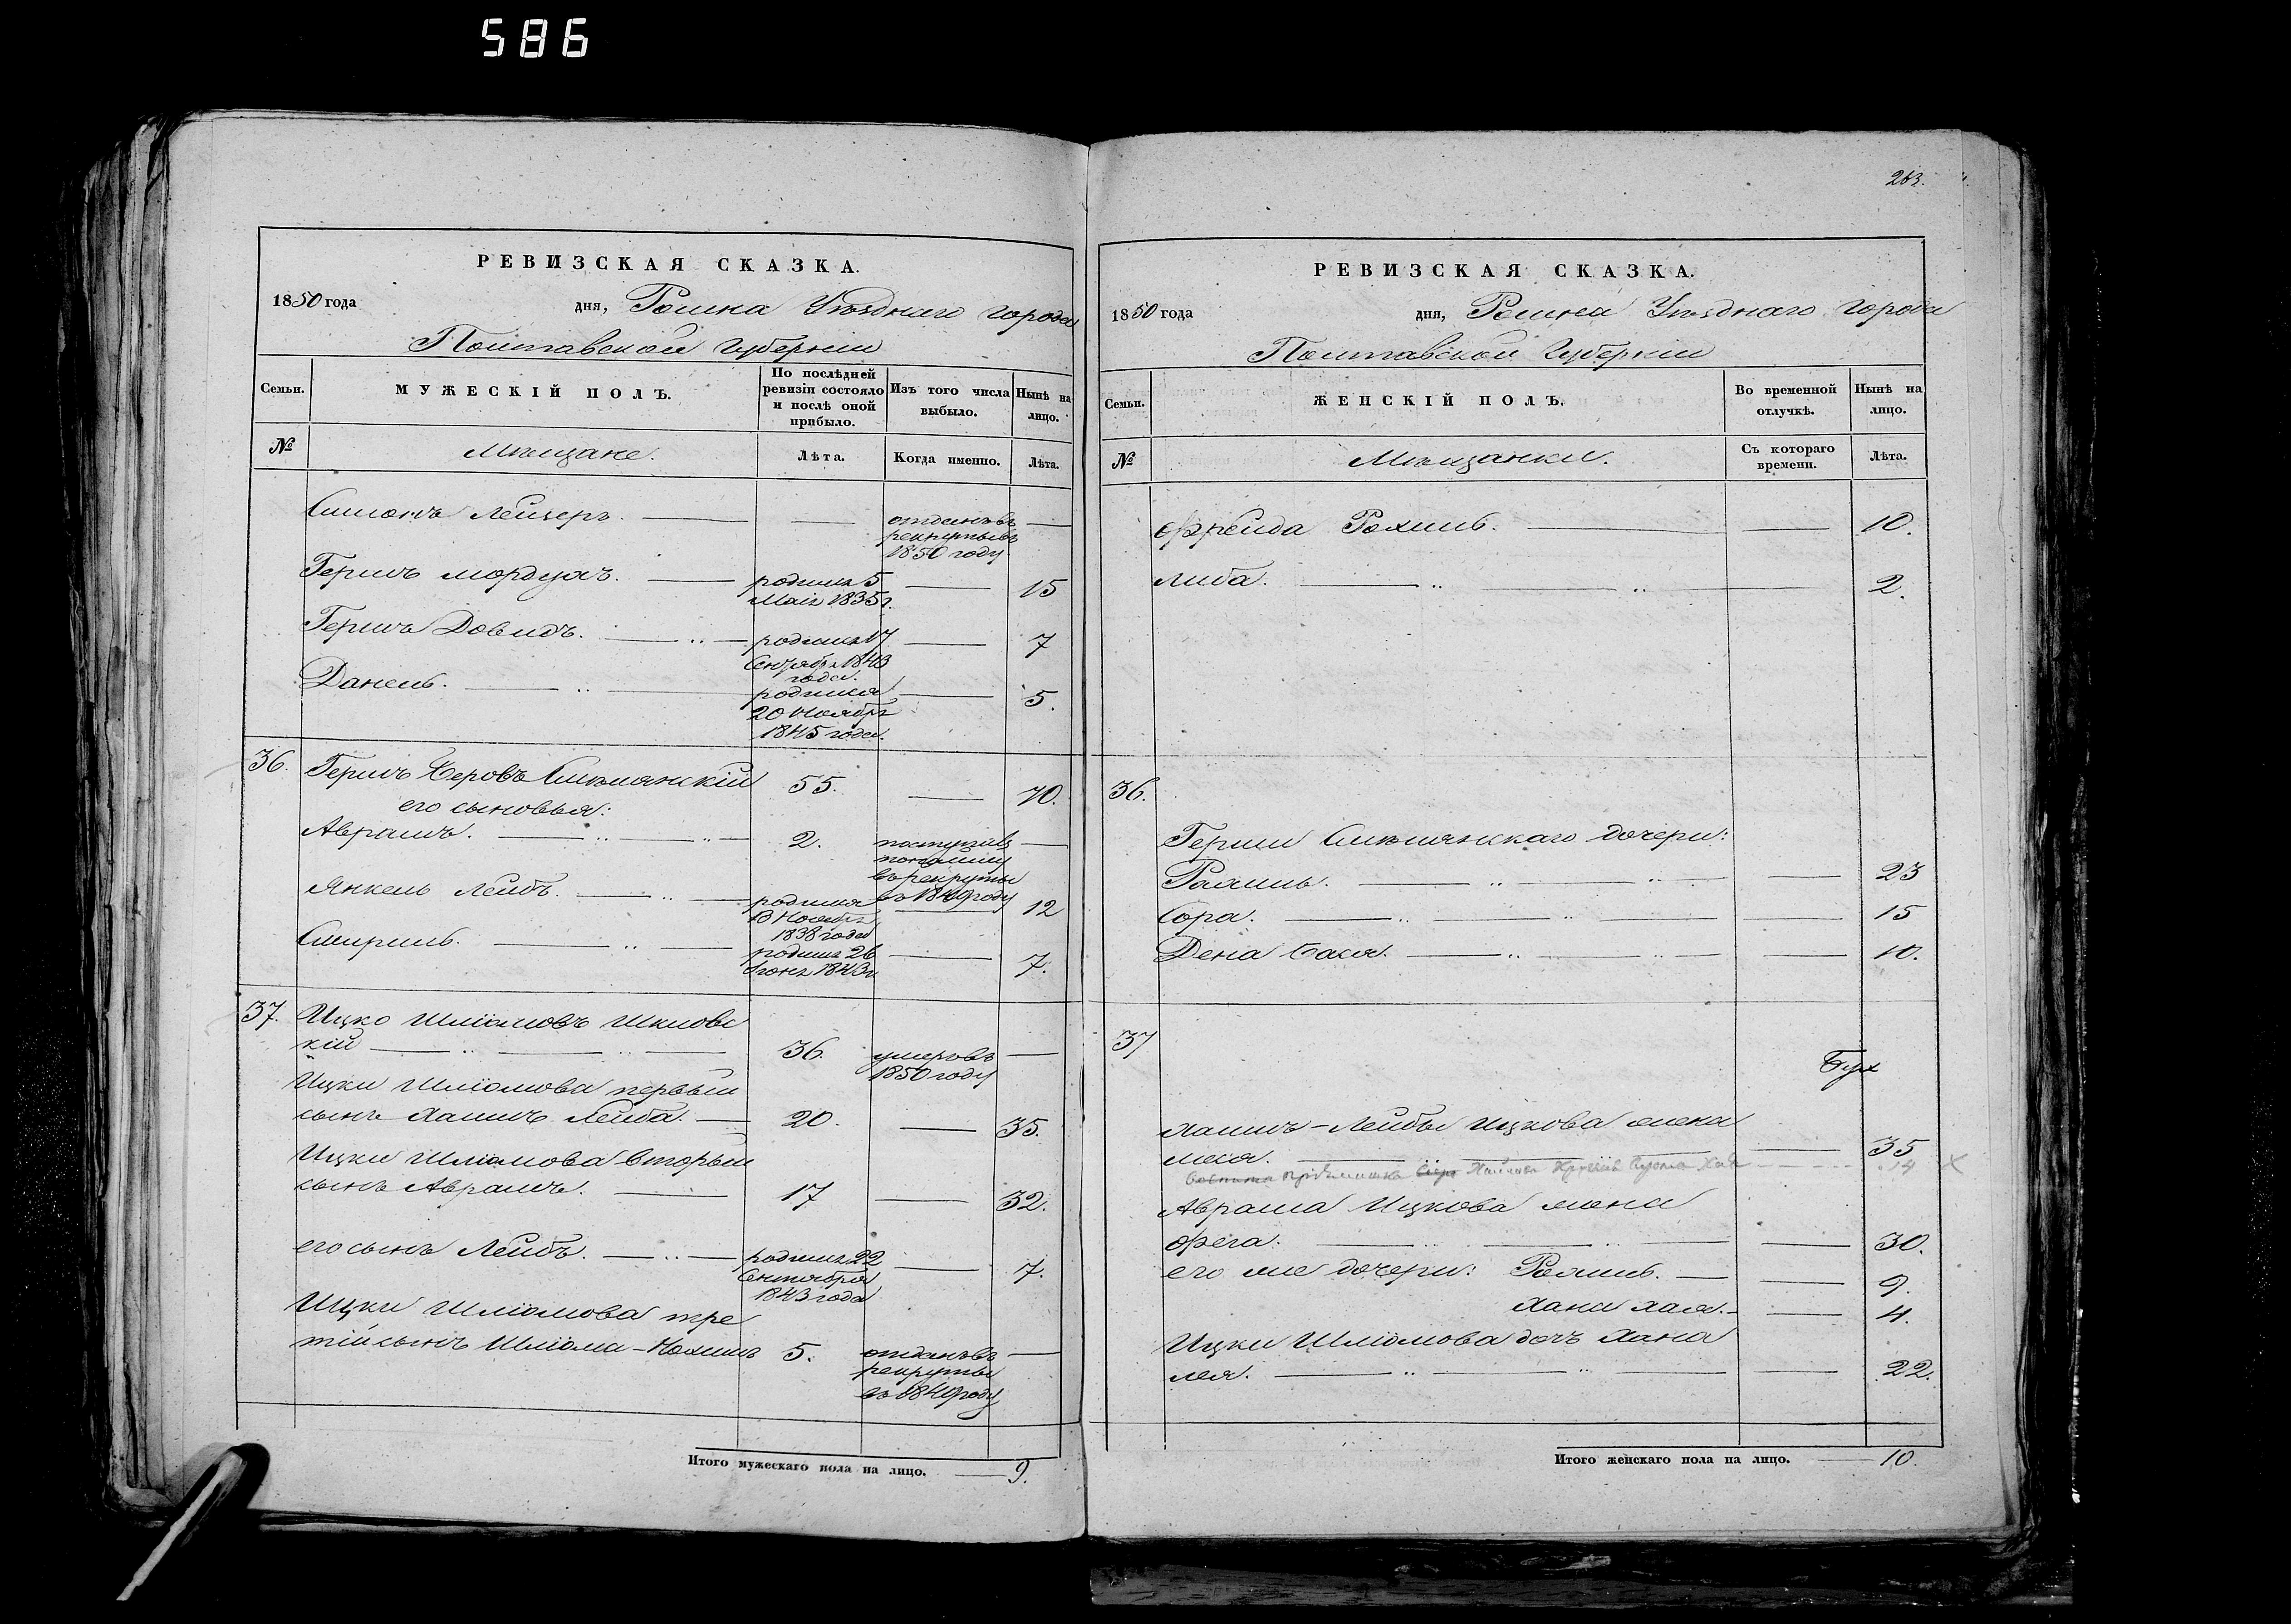 586
РЕВИЗСКАЯ СКАЗКА.
1850 года дня, Ромна Уѣзднаго города
Полтавской Губерніи
Семьи.
МУЖЕСКІЙ ПОЛЪ.
По послѣдней ревизіи состояло и послѣ оной прибыло.
Изъ того числа выбыло.
Нынѣ на лицо.
№
Мѣщане.
Лѣта.
Когда именно.
Лѣта.
Симонъ Лейзеръ. отданъ въ
рекруты въ
1850 году
Гершъ Мордухъ. родился 5 15
Маія 1835 г.
Гершъ Довидъ. родился 17 7
Сентября 1843
года.
Данель. родился 5.
20 Ноября
1845 года.
36. Гершъ Беровъ Смѣлянскій 55. 70.
его сыновья:
Аврамъ. 2. поступилъ
въ рекруты
въ 1849 году
Янкель Лейбъ. родился 12
Ноября
1838 года
Смерель. родился 26 7.
1843 г.
37. Ицко Шліомовъ Шклов
скій 36. умеръ въ
1850 году
Ицки Шліомова первый
сынъ Хаимъ Лейба. 20. 35.
Ицки Шліомова вторый
сынъ Аврамъ. 17 32.
его сынъ Лейбъ. родился 22 7.
Сентября
1843 года
Ицки Шліомова тре
тій сынъ Шліома-Нохимъ 5. отданъ въ
рекруты
въ 1840 году
Итого мужескаго пола на лицо. 9.
263.
РЕВИЗСКАЯ СКАЗКА.
1850 года дня, Ромна Уѣзднаго города
Полтавской Губерніи
Семьи.
ЖЕНСКІЙ ПОЛЪ.
Во временной отлучкѣ.
Нынѣ на лицо.
№
Мѣщанки.
Съ котораго времени.
Лѣта.
Фрейда Рохль. 10.
Либа. 2.
36.
Герши Смѣлянскаго дочери:
Рохль. 23
Сора. 15
Дена Бася. 10.
37
Хаимъ-Лейбы Ицкова жена
35
14 х
Аврама Ицкова жена
Фрега. 30.
его же дочери: Рохль. 9.
Хана Хая. 4.
Ицки Шліомова дочь Хана
Лея. 22.
Итого женскаго пола на лицо. 10.